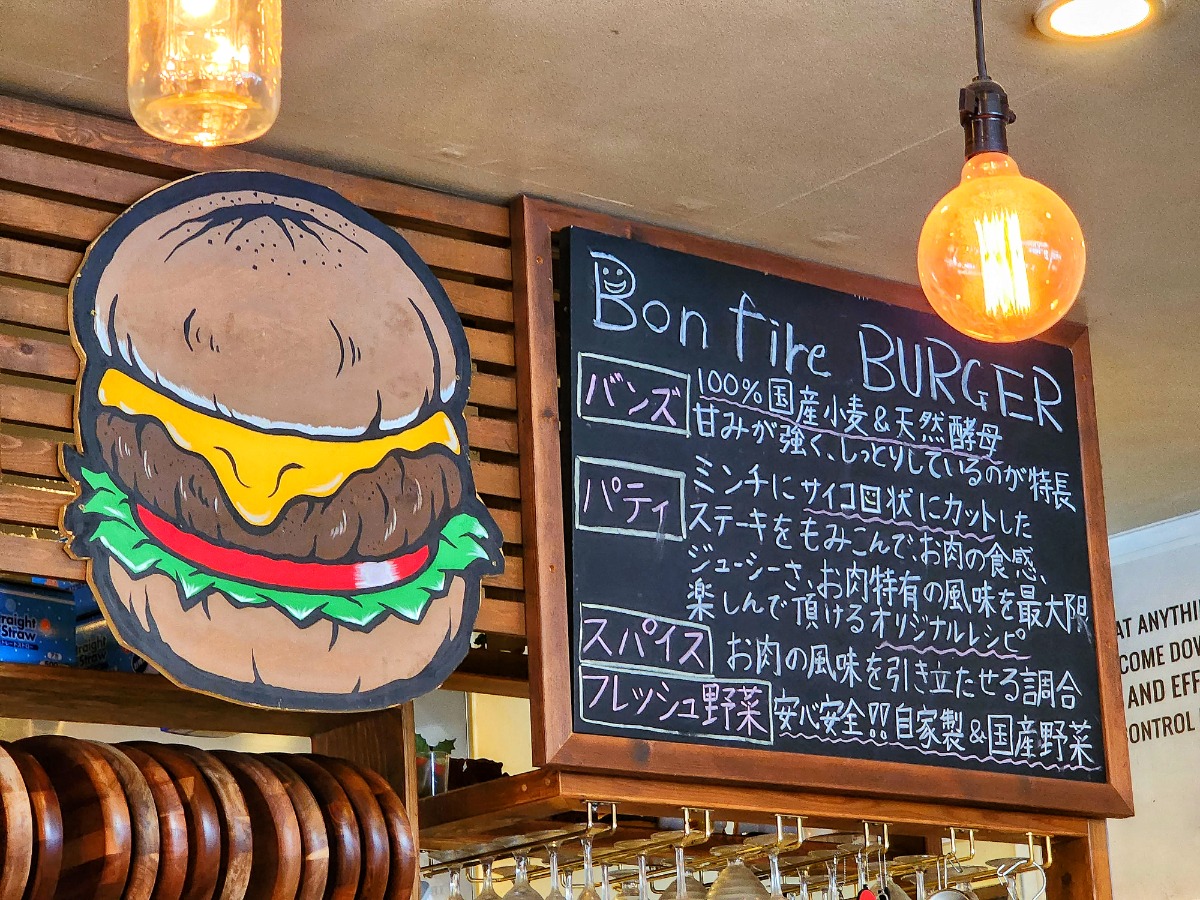 Bon fire BURGER
バンズ
100%国産小麦&天然酵母
甘みが強く、しっとりしているのが特長
パティ
ミンチにサイコロ状にカットした
ステーキをもみこんで、お肉の食感、
ジューシーさ、お肉特有の風味を最大限
楽しんで頂けるオリジナルレシピ
スパイス
お肉の風味を引き立たせる調合
フレッシュ野菜
安心安全!!自家製&国産野菜
raight
Straw
raight
Straw
AT ANYTHI
COME DOW
AND EFF
CONTROL